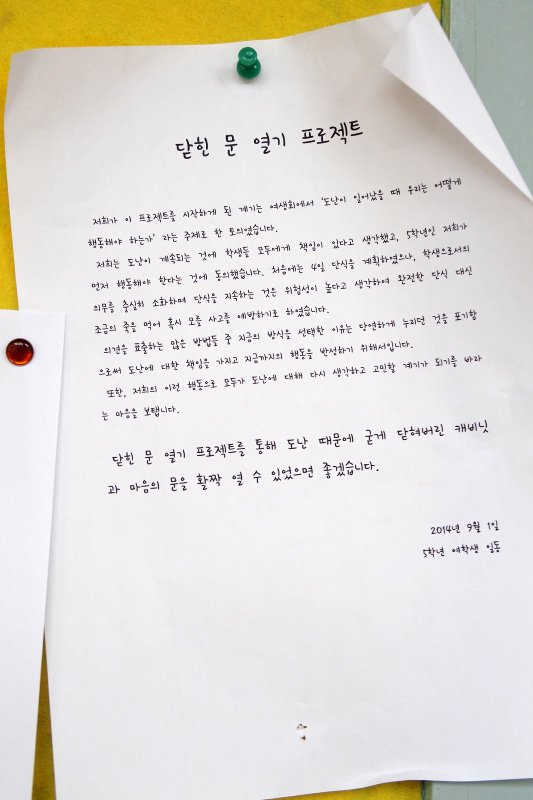 닫힌 문 열기 프로젝트
저희가 이 프로젝트를 시작하게 된 계기는 여생회에서 '도난이 일어났을 때 우리는 어떻게
행동해야 하는가' 라는 주제로 한 토의였습니다.
저희는 도난이 계속되는 것에 학생들 모두에게 책임이 있다고 생각했고, 5학년인 저희가
먼저 행동해야 한다는 것에 동의했습니다. 처음에는 4일 단식을 계획하였으나, 학생으로서의
의무를 충실히 소화하며 단식을 지속하는 것은 위험성이 높다고 생각하여 완전한 단식 대신
조금의 죽을 먹어 혹시 모를 사고를 예방하기로 하였습니다.
의견을 표출하는 많은 방법들 중 지금의 방식을 선택한 이유는 당연하게 누리던 것을 포기함
으로써 도난에 대한 책임을 가지고 지금까지의 행동을 반성하기 위해서입니다.
또한, 저희의 이런 행동으로 모두가 도난에 대해 다시 생각하고 고민할 계기가 되기를 바라
는 마음을 보냅니다.
닫힌 문 열기 프로젝트를 통해 도난 때문에 굳게 닫혀버린 캐비닛
과 마음의 문을 활짝 열 수 있었으면 좋겠습니다.
2014년 9월 1일
5학년 여학생 일동